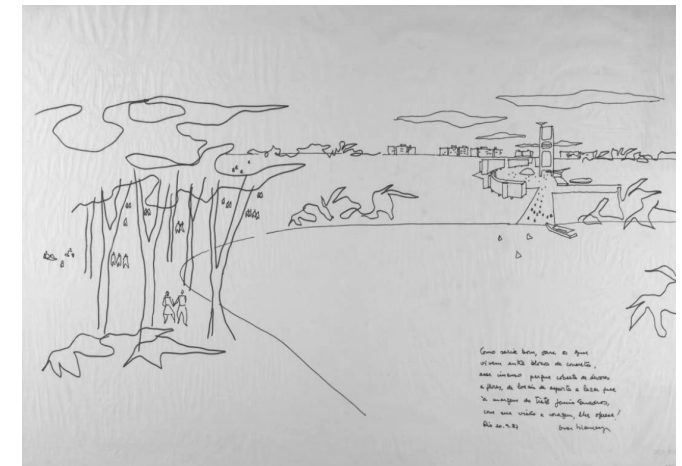 Como seria bom, para os que
vivem entre blocos de concreto,
esse imenso parque coberto de árvores
e flores, de locais de esporte e lazer que
à margem do Tietê Janio Quadros,
com sua visão e coragem, lhes oferece!
Rio 20.5.87 Oscar Niemeyer